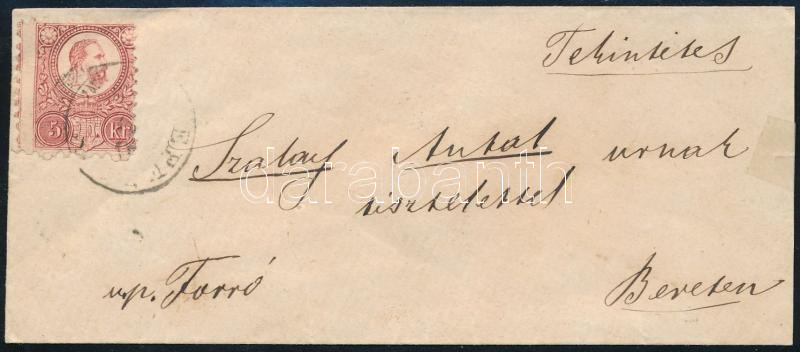 5 Kr
Tekintetes
Szalay Antal urnak
tisztelettel
u.p. Forró
Bereten
darabanth